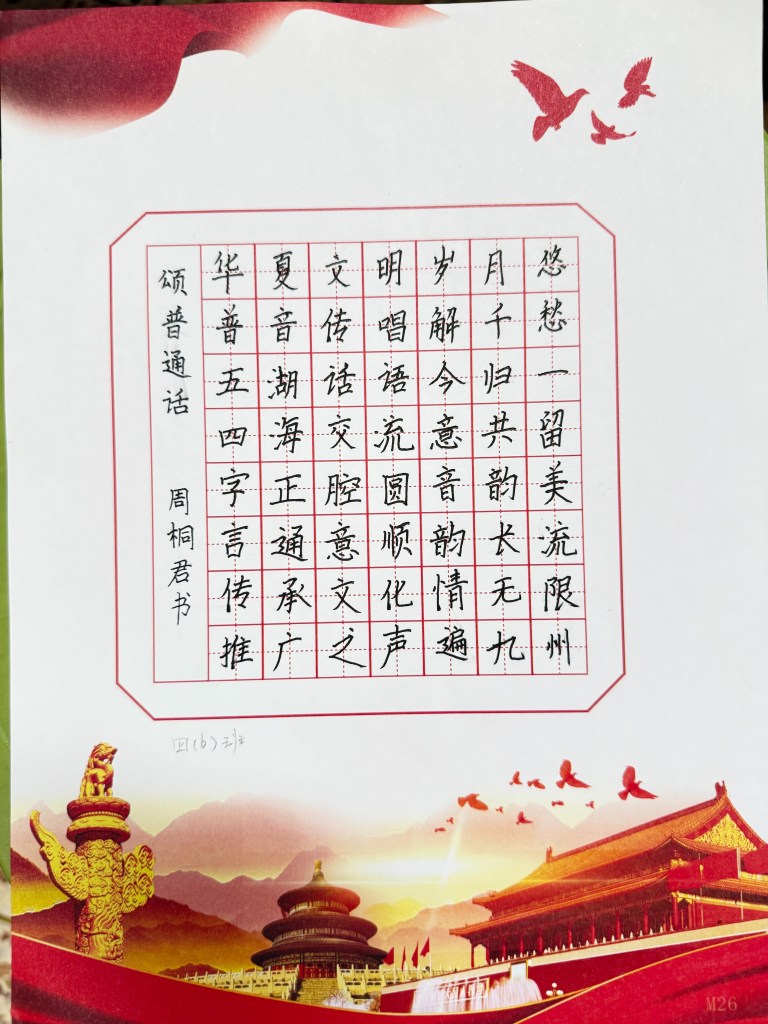 颂普通话 周桐君书
华夏文明岁月悠
普音传唱解千愁
五湖话语今归一
四海交流意共留
字正腔圆音韵美
言通意顺韵长流
传承文化情无限
推广之声遍九州
四(6)班
M26